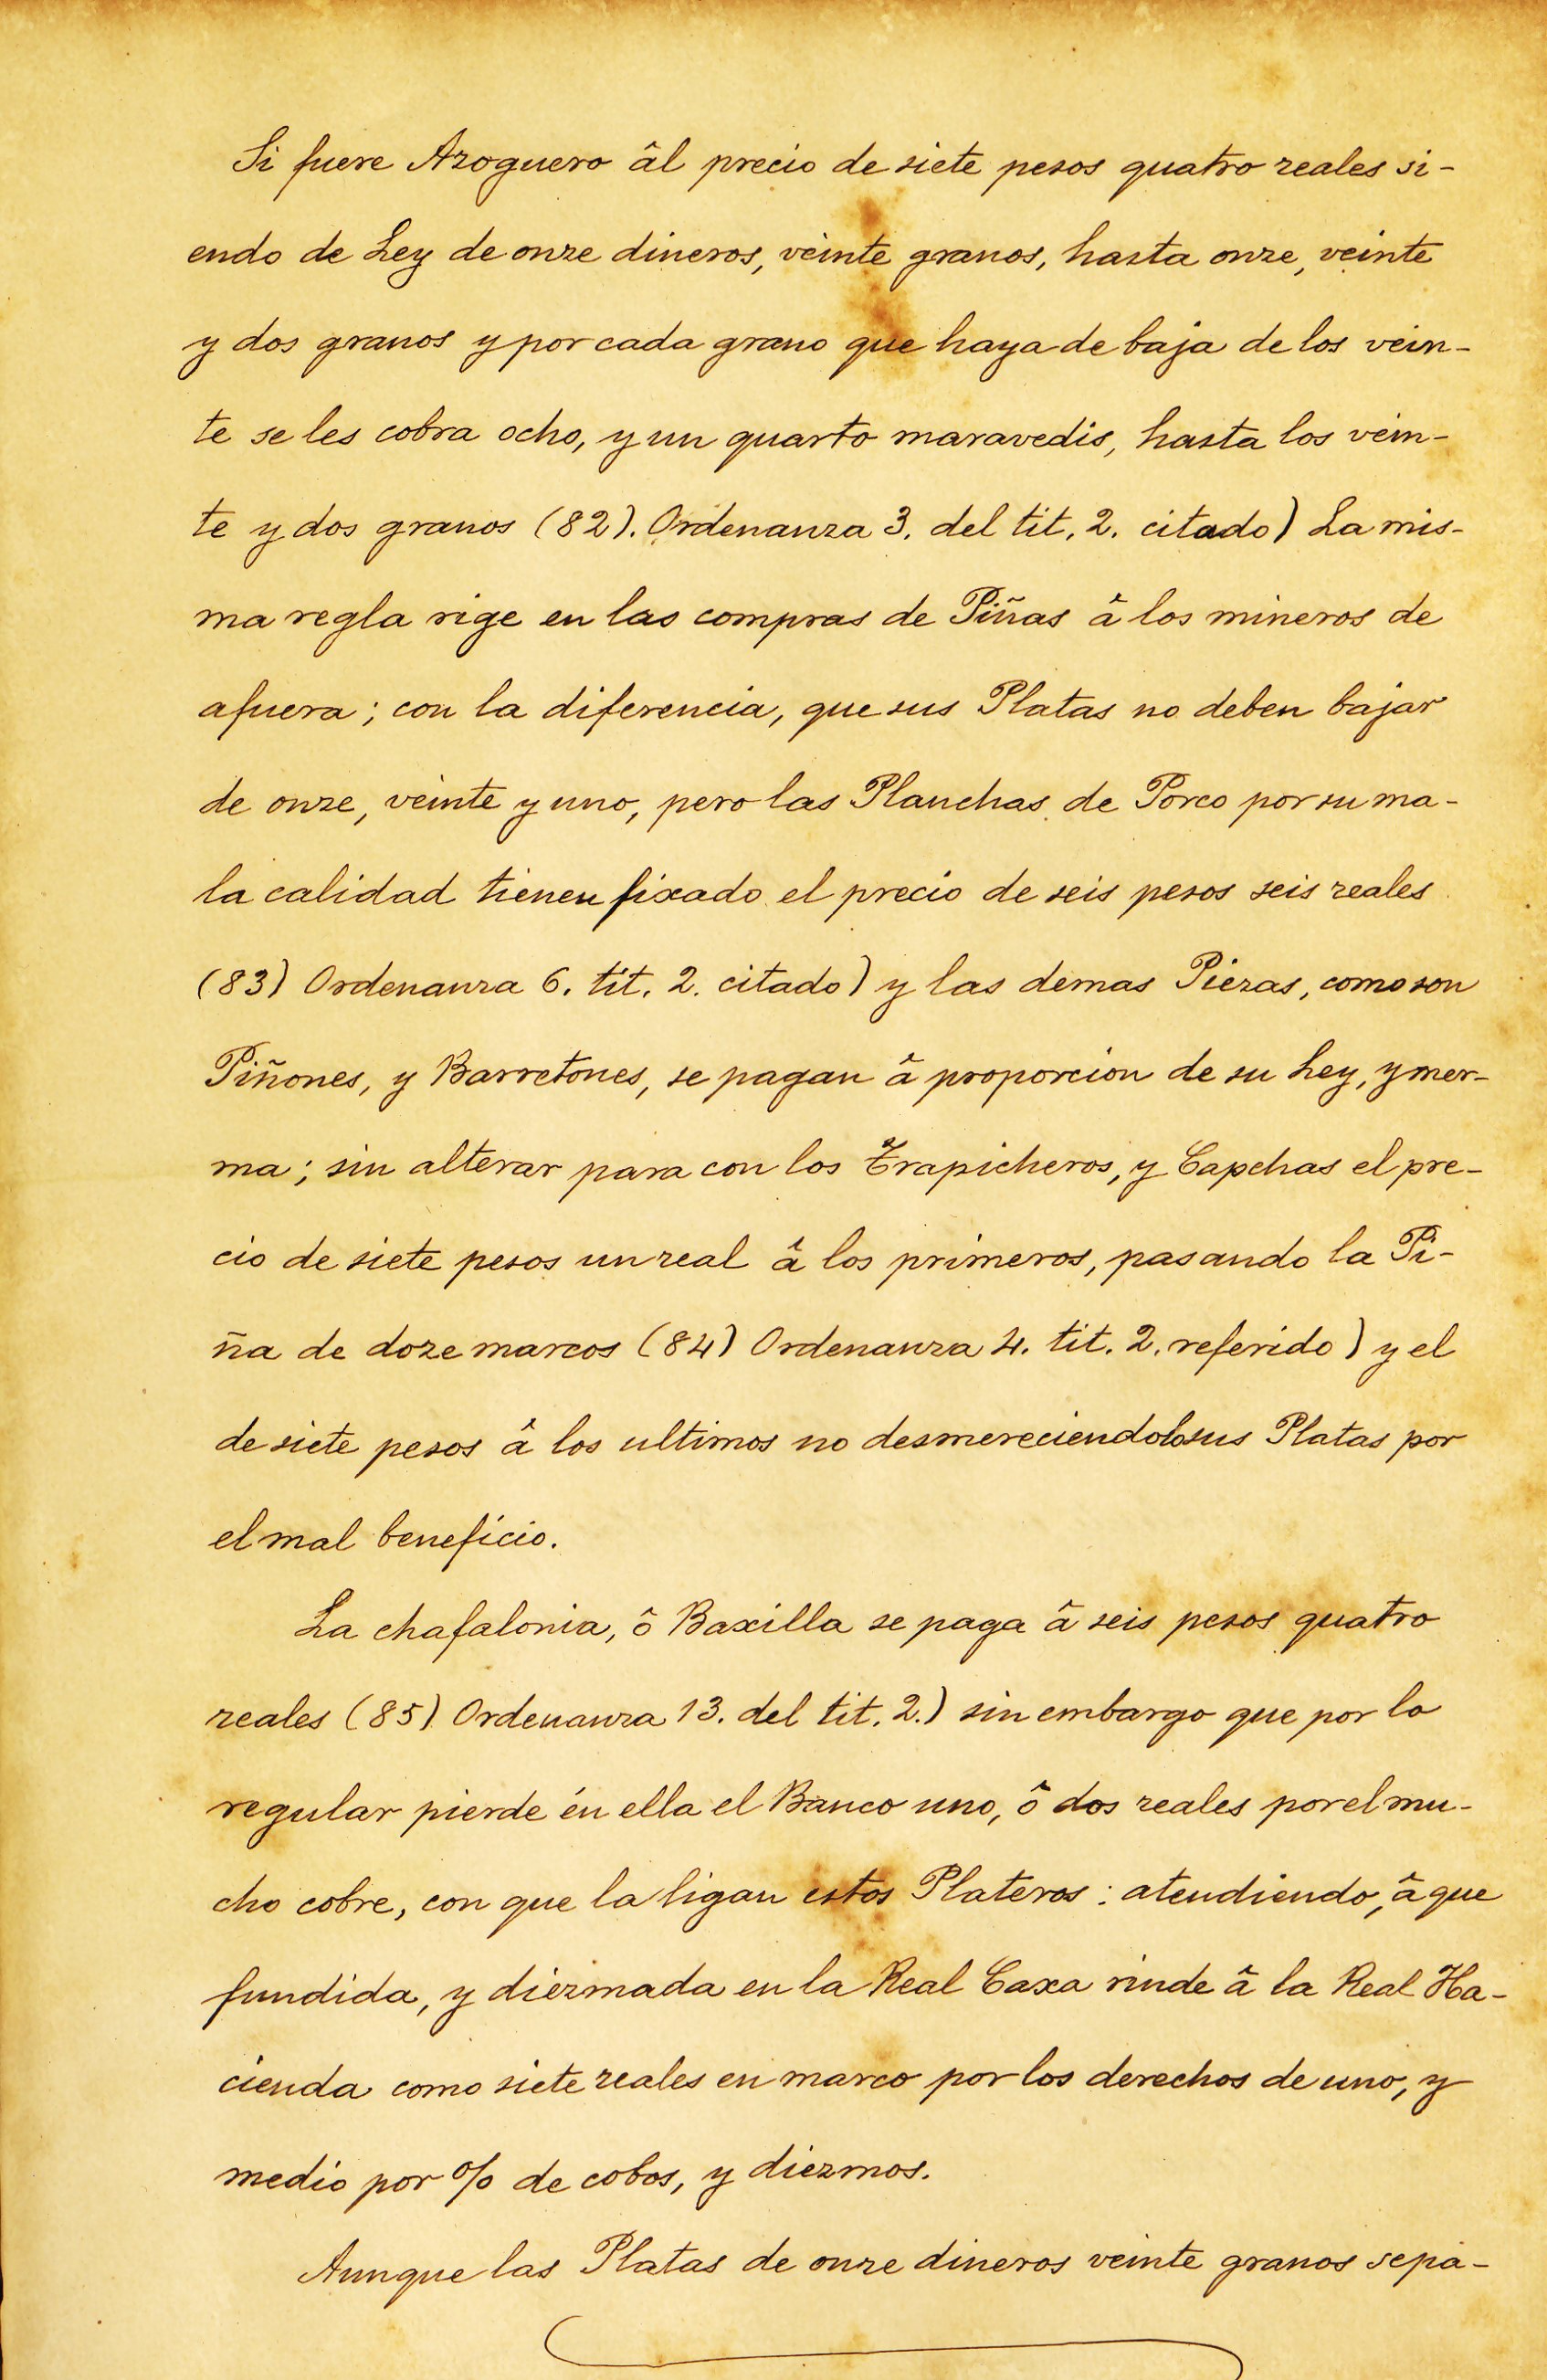 Si fuere Azoguero âl precio de siete pesos quatro reales si-
endo de Ley de onze dineros, veinte granos, hasta onze, veinte
y dos granos y por cada grano que haya de baja de los vein-
te se les cobra ocho, y un quarto maravedis, hasta los vein-
te y dos granos (82). Ordenanza 3. del tit. 2. citado) La mis-
ma regla rige en las compras de Piñas â los mineros de
afuera; con la diferencia, que sus Platas no deben bajar
de onze, veinte y uno, pero las Planchas de Porco por su ma-
la calidad tienen fixado el precio de seis pesos seis reales
(83) Ordenanza 6. tit. 2. citado) y las demas Piezas, como son
Piñones, y Barretones, se pagan â proporcion de su Ley, y mer-
ma; sin alterar para con los Trapicheros, y Capchas el pre-
cio de siete pesos un real â los primeros, pasando la Pi-
ña de doze marcos (84) Ordenanza 4. tit. 2. referido) y el
de siete pesos â los ultimos no desmereciendolo sus Platas por
el mal beneficio.
La chafalonia, ô Baxilla se paga â seis pesos quatro
reales (85) Ordenanza 13. del tit. 2.) sin embargo que por lo
regular pierde én ella el Banco uno, ô dos reales por el mu-
cho cobre, con que la ligan estos Plateros: atendiendo, â que
fundida, y diezmada en la Real Caxa rinde â la Real Ha-
cienda como siete reales en marco por los derechos de uno, y
medio por % de cobos, y diezmos.
Aunque las Platas de onze dineros veinte granos se pa-